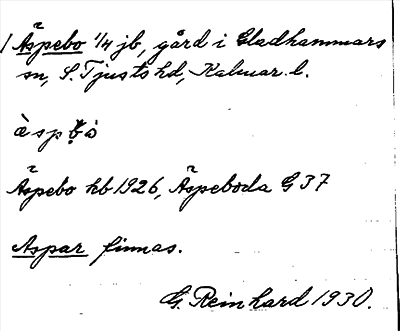 / Äspebo 1/4 jb, gård i Gladhammars
sn, S. Tjusts hd, Kalmar l.
Äspebo kb 1926, Äspeboda G 37
Aspar finnas.
G. Reinhard 1930.